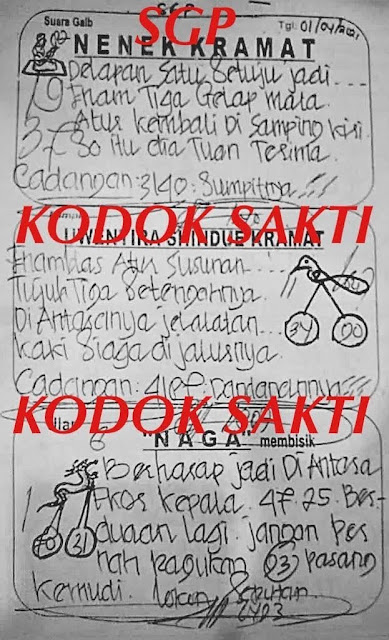 SGP
Suara Gaib
Tgl: 01/04/2021
NENEK KRAMAT
Delapan Satu Setuju jadi....
19 Enam Tiga Gelap Mata.
Atus Kembali Di Samping Kiri.
37 So itu dia Tuan Terima.
Cadangan: 3140: Sumpitnya
KODOK SAKTI
UWENTIRA KRAMAT
Enambas Atur Susunan...
Tujuh Tiga Setengahnya.
Di Antaranya jelalatan...
Kaki Siaga di jalurnya.
34 00
Cadangan:
KODOK SAKTI
6
"NAGA" membisik
Berharap jadi Di Antara
Ekor Kepala. 47.25. Ber-
duaan lagi. jangan per
nah Ragukan 03 pasang
Kemudi.
31
6403